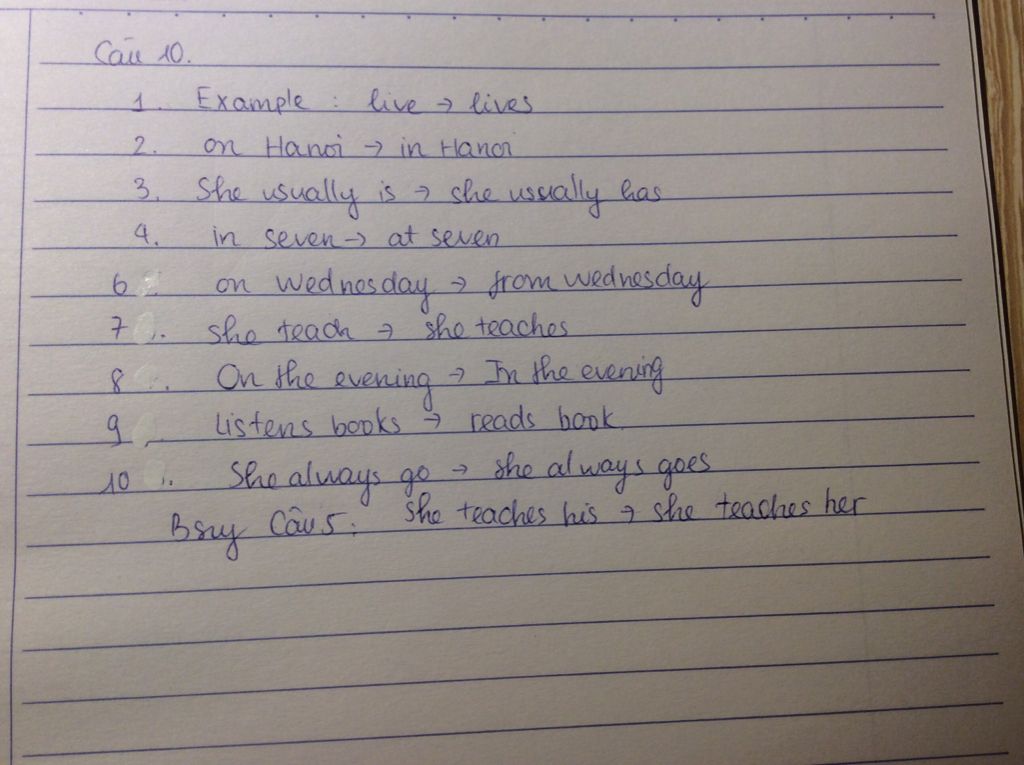 Câu 10.
1. Example : live → lives
2. on Hanoi → in Hanoi
3. She usually is → she usually has
4. in seven → at seven
6. on Wednesday → from Wednesday
7. She teach → she teaches
8. On the evening → In the evening
9. Listens books → reads book.
10. She always go → she always goes
Câu 5: She teaches his → she teaches her